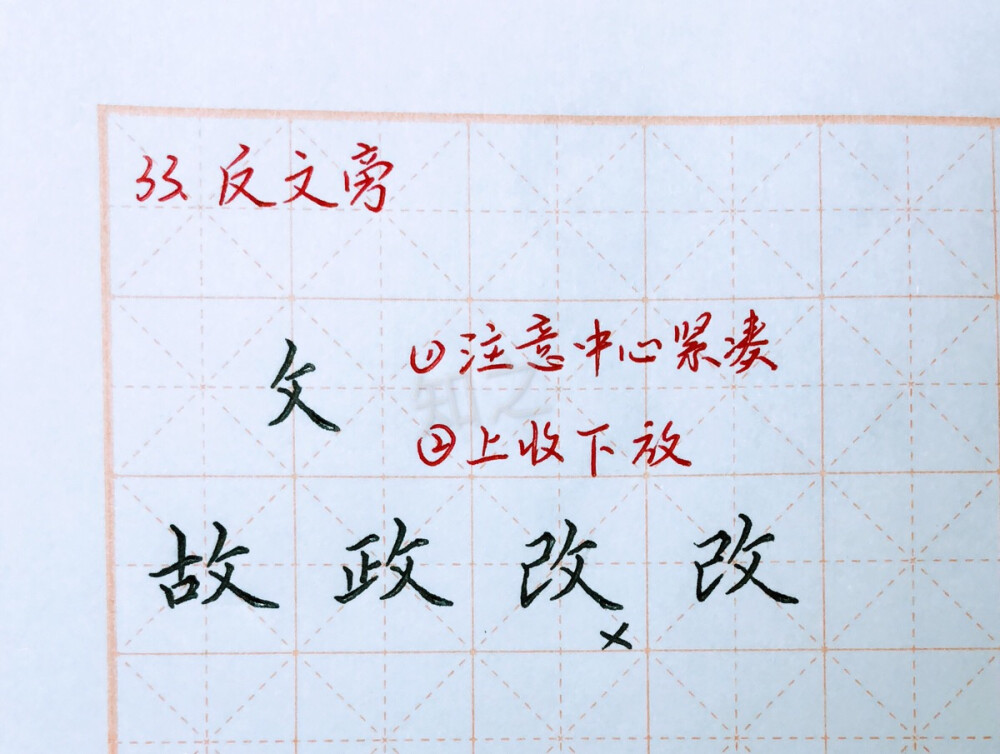 33、反文旁
①注意中心紧凑
攵
②上收下放
故政改改
×
知之